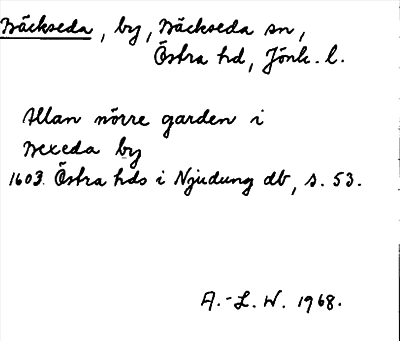 Bäckseda, by, Bäckseda sn,
Östra hd, Jönk. l.
Allan nörre garden i
Bexeda by
1603. Östra hds i Njudung db, s. 53.
A.-L. W. 1968.